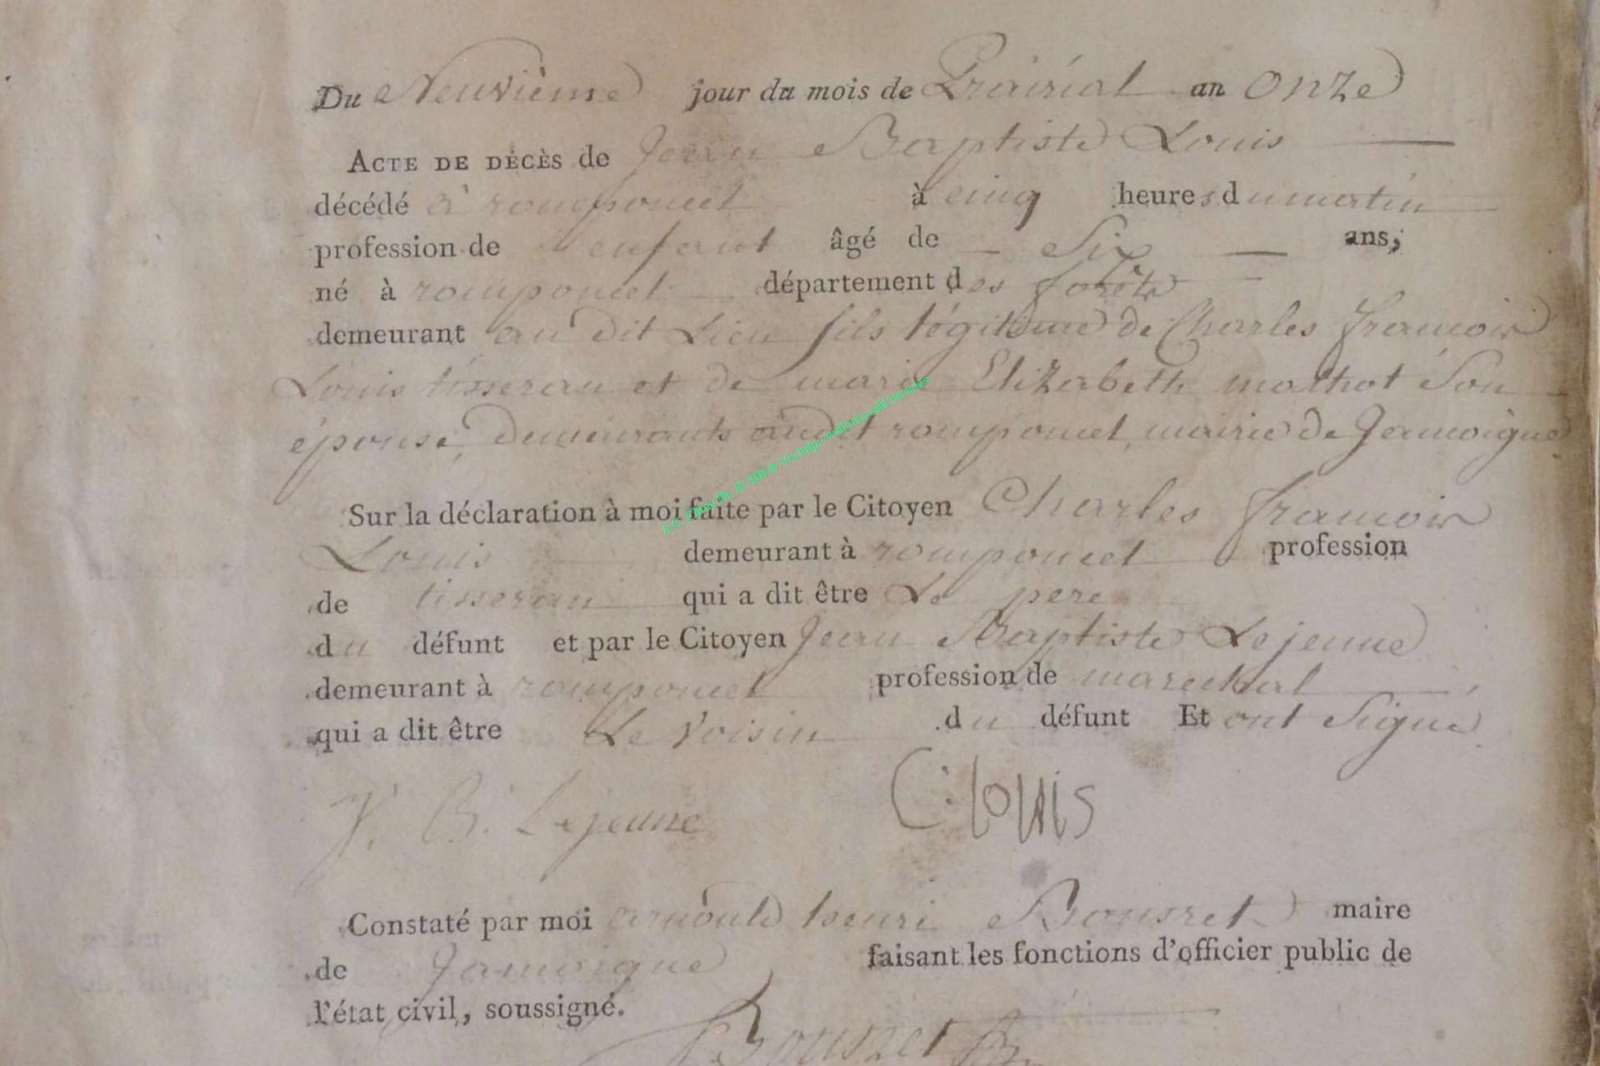 Du Neuvième jour du mois de Prairial an Onze
ACTE DE DÉCÈS de Jean Baptiste Louis
décédé à romponcel à cinq heures du matin
profession de enfant âgé de Six ans,
né à romponcel département des forêts
demeurant au dit Lieu fils légitime de Charles francois
Louis tisseran et de marie Elizabeth mathot Son
épouse, demeurants audit romponcel, mairie de Jamoigne
Sur la déclaration à moi faite par le Citoyen Charles francois
Louis demeurant à romponcel profession
de tisseran qui a dit être Le pere
du défunt et par le Citoyen Jean Baptiste Lejeune
demeurant à romponcel profession de marechal
qui a dit être Le Voisin du défunt Et ont Signé
J. B. Lejeune C. louis
Constaté par moi arnould henri Bousret maire
de Jamoigne faisant les fonctions d'officier public de
l'état civil, soussigné.
Bousret